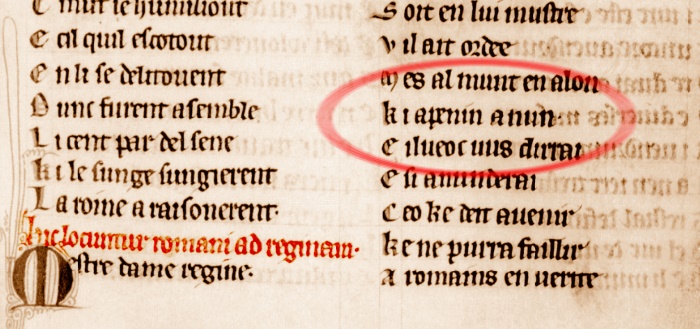 E mut se humiliout
E cil quil escotout
E n li se delitouent
D unc furent asemble
L i cent par del sene
K i le sunge sungierent
L a roine a raisonerent.
Hic locuntur romani ad reginam.
Mestre dame regine.
S oit en lui mustre
V il ait ordee
M es al munt en alon
k i apenin a nun
E iluec vus dirrai
E si amunderai
C eo ke deit avenir
k e ne purra faillir
A romains en verite